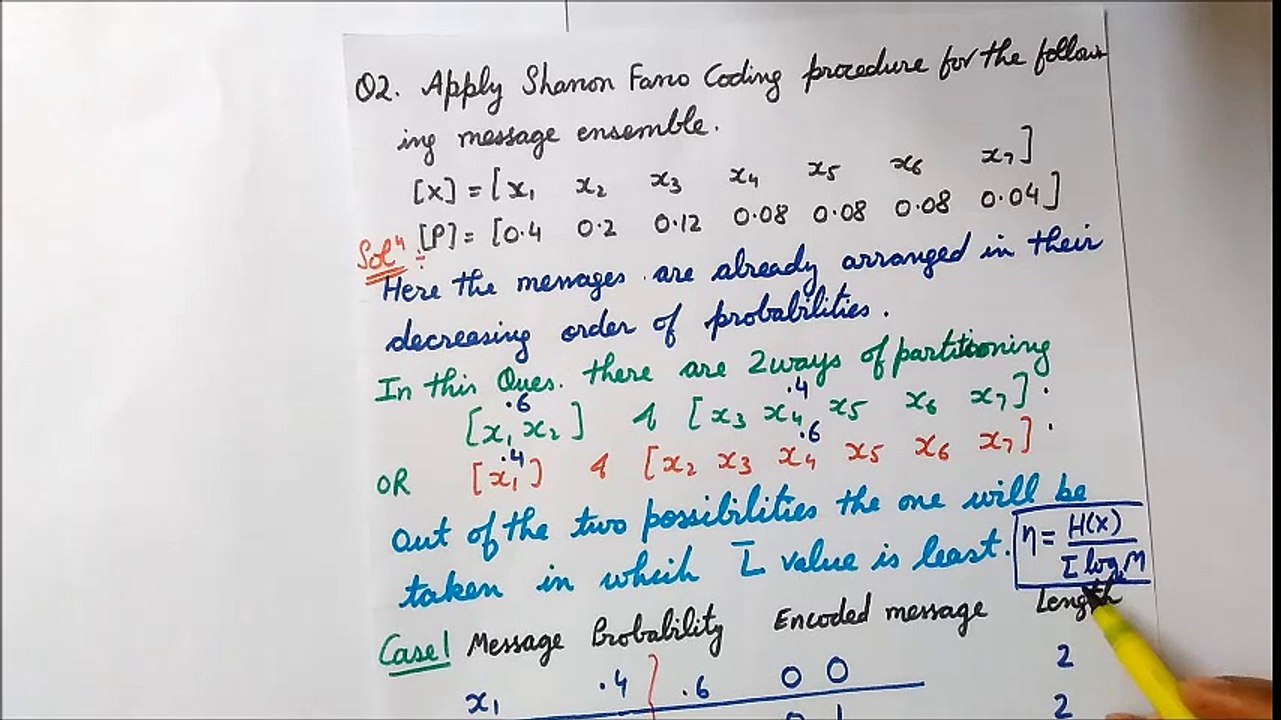 Q2. Apply Shanon Fano Coding procedure for the follow
ing message ensemble.
[X] = [x₁ x₂ x₃ x₄ x₅ x₆ x₇]
[P] = [0.4 0.2 0.12 0.08 0.08 0.08 0.04]
Solⁿ :-
Here the messages are already arranged in their
decreasing order of probabilities.
In this Ques. there are 2 ways of partitioning
.6 .4
[x₁ x₂] & [x₃ x₄ x₅ x₆ x₇].
.4 .6
OR [x₁] & [x₂ x₃ x₄ x₅ x₆ x₇].
Out of the two possibilities the one will be
taken in which L̄ value is least.
η = H(x) / L̄ log₂ M
Case 1 Message Probability Encoded message Length
x₁ .4 .6 0 0 2
0 1 2